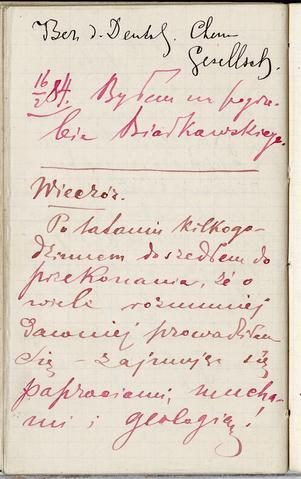 Ber. d. Deutsch. Chem.
Gesellsch.
16/2 84. Byłem na pogrze-
bie
Wieczór.
Po lataniu kilkogo-
dzinnem doszedłem do
przekonania, że o
wiele rozumniej
dawniej prowadziłem
się – zajmując się
paprociami, mucha-
mi i geologią!